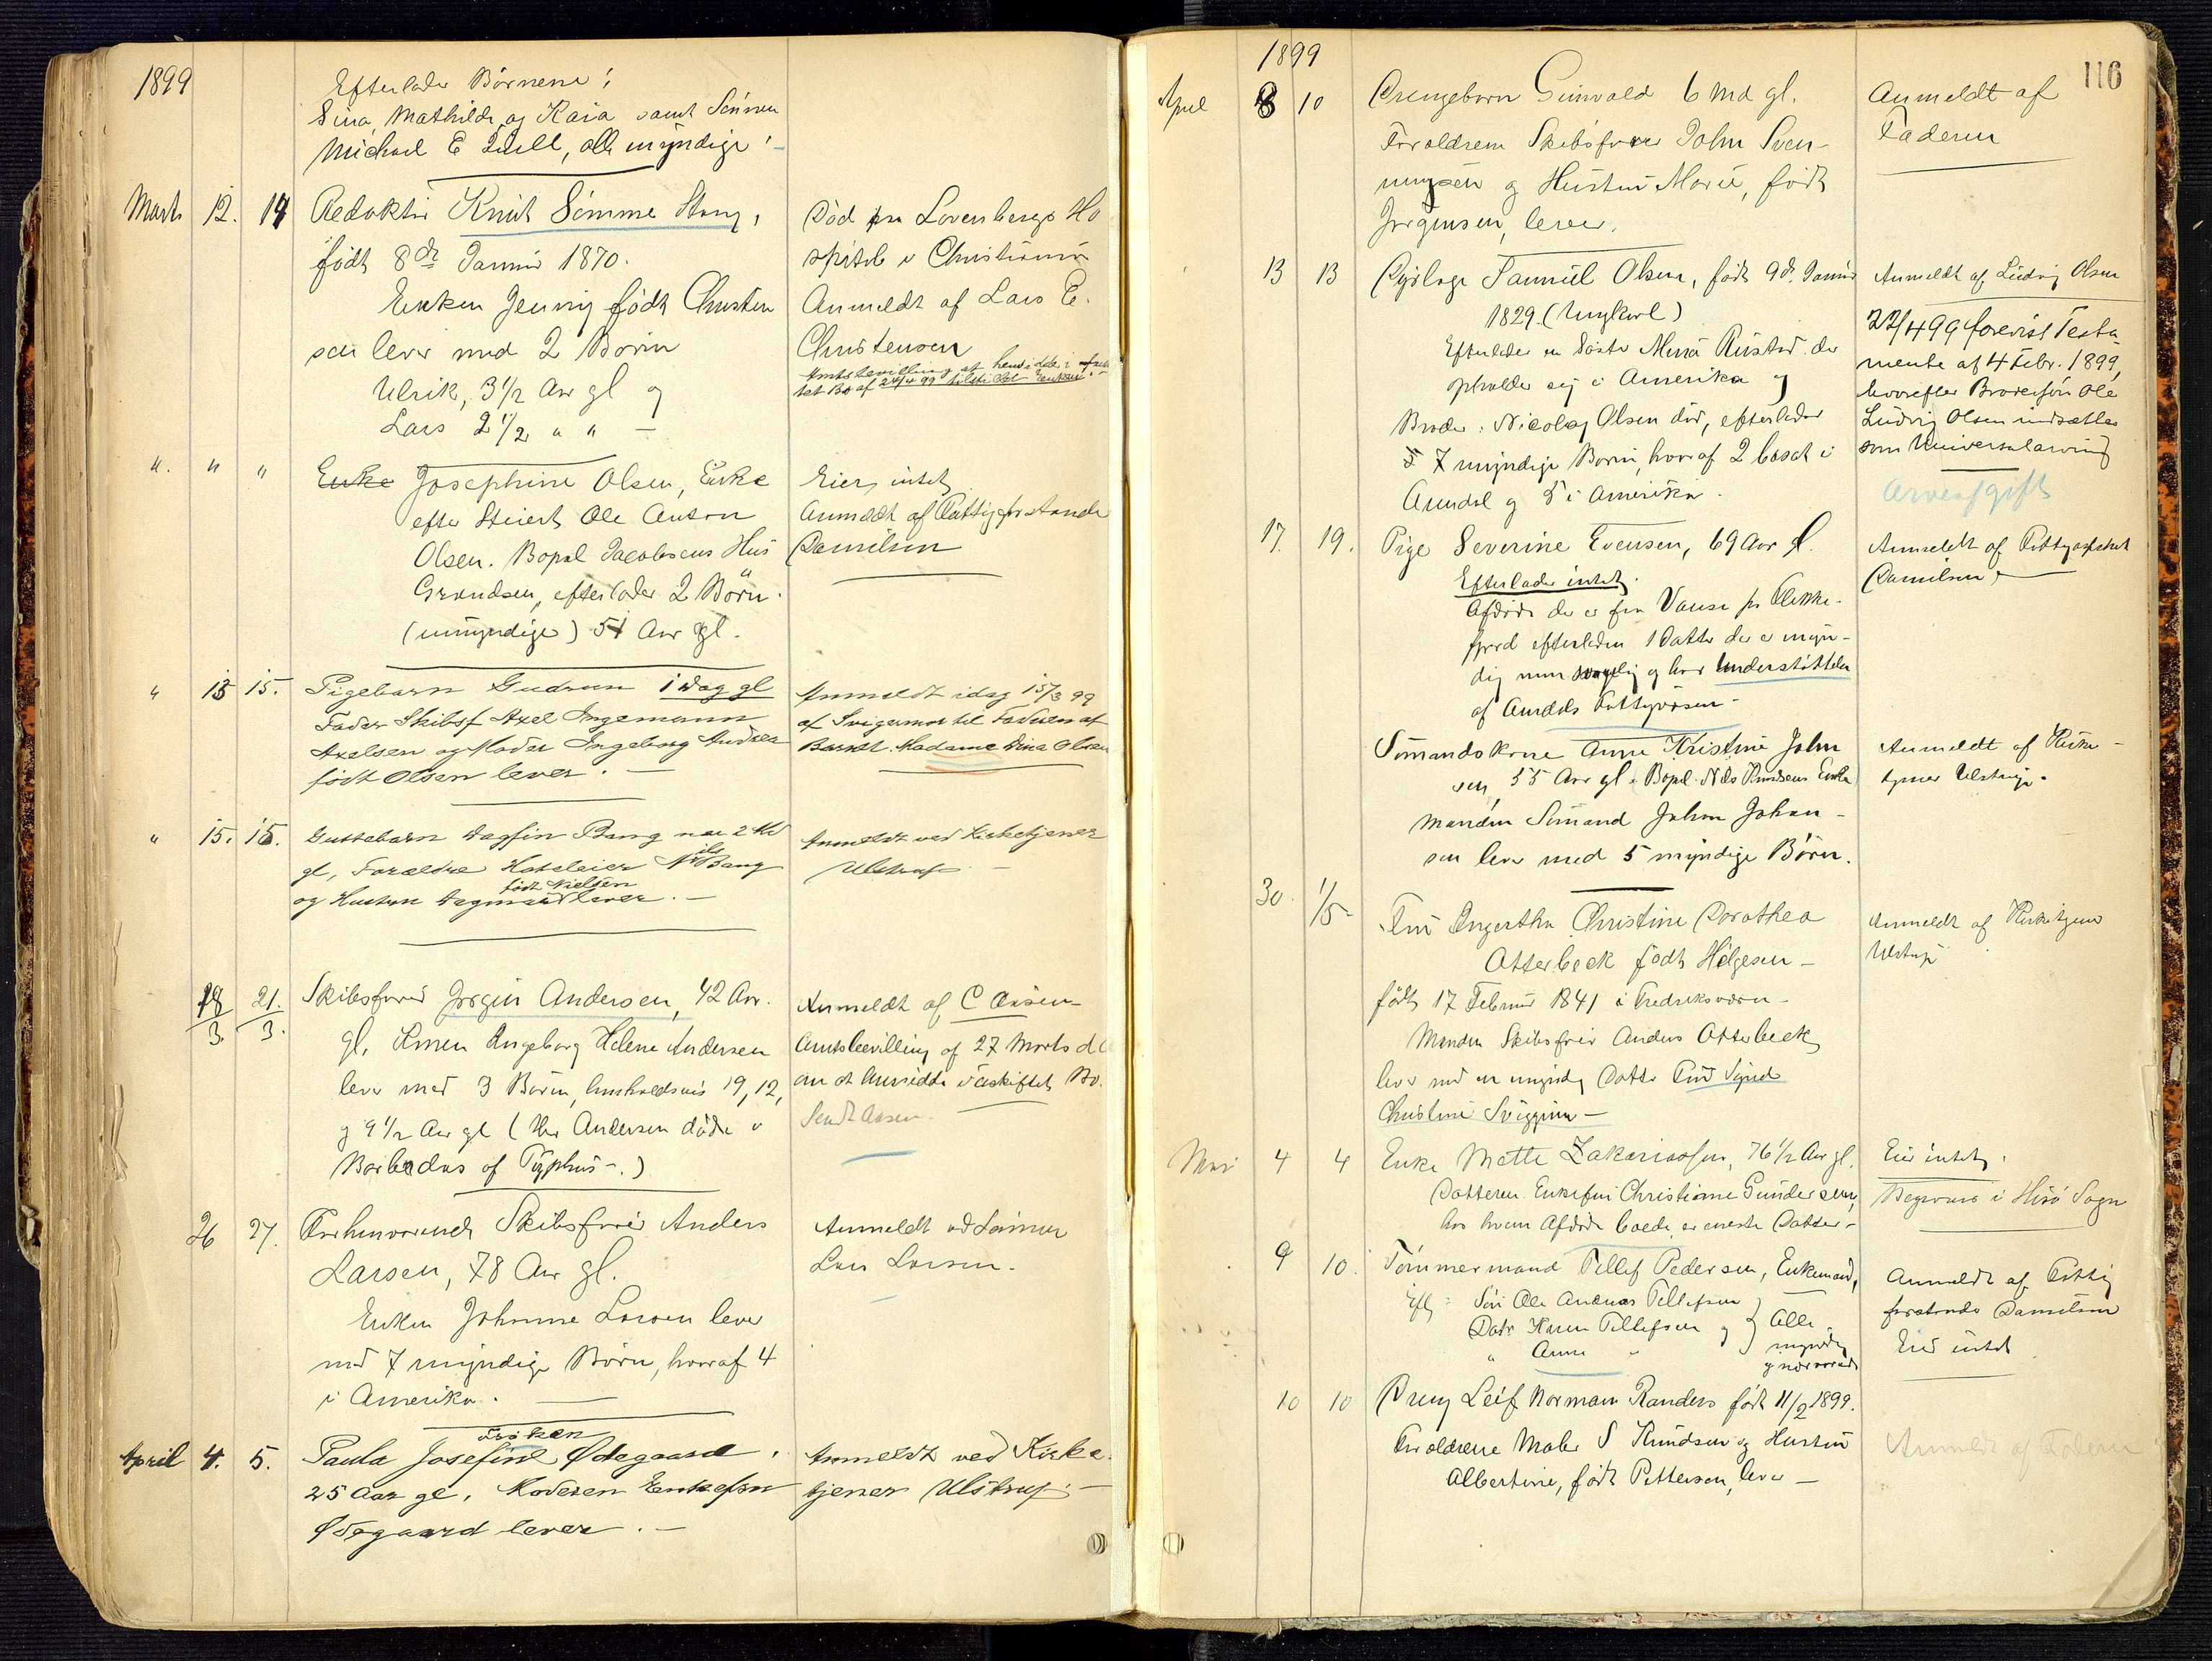 1899
Efterlader Börnene:
Sina, Mathilde og Kaia samt Sönnen
Michael E. Quell, alle myndige
Marts 12. 14 Redaktör Knut Sömme Stang,
född 8de Januar 1870.
Enken Jenny född Christen
sen lever med 2 Börn
Ulrik, 3 1/2 Aar gl og
Lars 2 1/2 " " —
Död paa Lovenbergs Ho
spital i Christiania
Anmeldt af Lars E.
Christensen
Amtsbevilling at hensidde i uskif
tet Bo af 24/4 99 tilst. Enken.
" " " Enke Josephine Olsen, Enke
efter Stuert Ole Anton
Olsen. Bopæl Jacobsens Hus
Grandsen, efterlader 2 Börn
(umyndige) 51 Aar gl.
Eier intet
Anmeldt af Fattigforstander
Danielsen
" 15 15. Pigebarn Gudrun 1 Dag gl
Fader Skibsf Axel Ingemann
Axelsen og Moder Ingeborg Andrea
född Olsen lever. —
Anmeldt idag 15/3 99
af Svigermor til Faderen af
Barnet. Madame Dina Olsen
" 15. 15. Guttebarn Dagfin Bang nær 2 Md
gl, Forældre Hoteleier Nils Bang
og Hustru Dagmar född Nielsen lever. —
Anmeldt ved Kirketjener
Ulstrup —
18/3. 21./3. Skibsförer Jörgen Andersen, 42 Aar
gl. Konen Ingeborg Helene Andersen
lever med 3 Börn, henholdsvis 19, 12,
og 9 1/2 Aar gl (Hr Andersen döde i
Barbados af Typhus —.)
Anmeldt af C Aasen
Amtsbevilling af 27 Marts d.A
om at hensidde i uskiftet Bo.
Sendt Aasen.
26 27. Forhenværende Skibsförer Anders
Larsen, 78 Aar gl.
Enken Johanne Larsen lever
med 7 myndige Börn, hvoraf 4
i Amerika. —
Anmeldt ved Sönnen
Lars Larsen.
April 4. 5. Fröken
Paula Josefine Ødegaard,
25 Aar gl, Moderen Enkefru
Ødegaard lever. —
Anmeldt ved Kirke
tjener Ulstrup. —
1899
116
April 8 10 Drengebarn Gunvald 6 Md gl.
Forældrene Skibsförer John Sven-
ningsen og Hustru Marie, född
Jörgensen, lever.
Anmeldt af
Faderen
13 13 Daglön Samuel Olsen, född 9de Januar
1829. (Ungkarl)
Efterlader en Söster Maria Rustad der
opholder sig i Amerika og
Broder: Nicolay Olsen död, efterlader
7 myndige Börn, hvoraf 2 bosat i
Arendal og 5 i Amerika.
Anmeldt af Ludvig Olsen
22/4 99 forevist Testa
mente af 4 Febr. 1899,
hvorefter Brodersön Ole
Ludvig Olsen indsættes
som Universalarving
Arveafgift
17. 19. Pige Severine Evensen, 69 Aar gl.
Efterlader intet.
Afdöde der er fra Vanse pr Flekke-
fjord efterlader 1 Datter der er myn-
dig men svagelig og har Understöttelse
af Arendals Fattigvæsen —
Anmeldt af Fattigforstander
Danielsen —
Sömandskone Anne Kristine John
sen, 55 Aar gl. Bopæl Nils Knudsens Enke
Manden Sömand John Johan-
sen lever med 5 myndige Börn.
Anmeldt af Kirke-
tjener Ulstrup.
30. 1/5 Fru Ingertha Christine Dorothea
Otterbeck född Helgesen —
född 17 Februar 1841 i Fredriksværn —
Manden Skibsförer Anders Otterbeck
lever med en myndig Datter Fru Sigrid
Christine Sviggum —
Anmeldt af Kirketjener
Ulstrup
Mai 4 4 Enke Mette Zakariassen, 76 1/2 Aar gl.
Datteren Enkefru Christiane Gundersen,
hos hvem Afdöde boede, er eneste Datter —
Eier intet.
Begraves i Hisö Sogn
9 10. Tömmermand Tellef Pedersen, Enkemand,
Eftl: Sön Ole Andreas Tellefsen
Datr Karen Tellefsen og
" Anne "
Alle
myndige
og nærværende
Anmeldt af Fattig
forstander Danielsen
Eier intet
10 10 Dreng Leif Norman Randers född 11/2 1899.
Forældrene Maler S Knudsen og Hustru
Albertine, född Pettersen, lever —
Anmeldt af Faderen